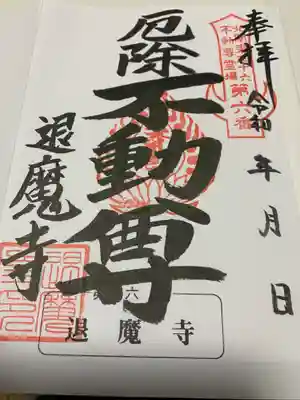 奉拝 令和 年 月 日
不動尊霊場
第六番
厄除不動尊
退魔寺
六
退魔寺